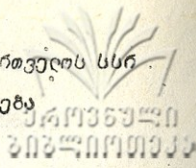 რთველოს სსრ
ება
ეროვნული
ბიბლიოთეკა